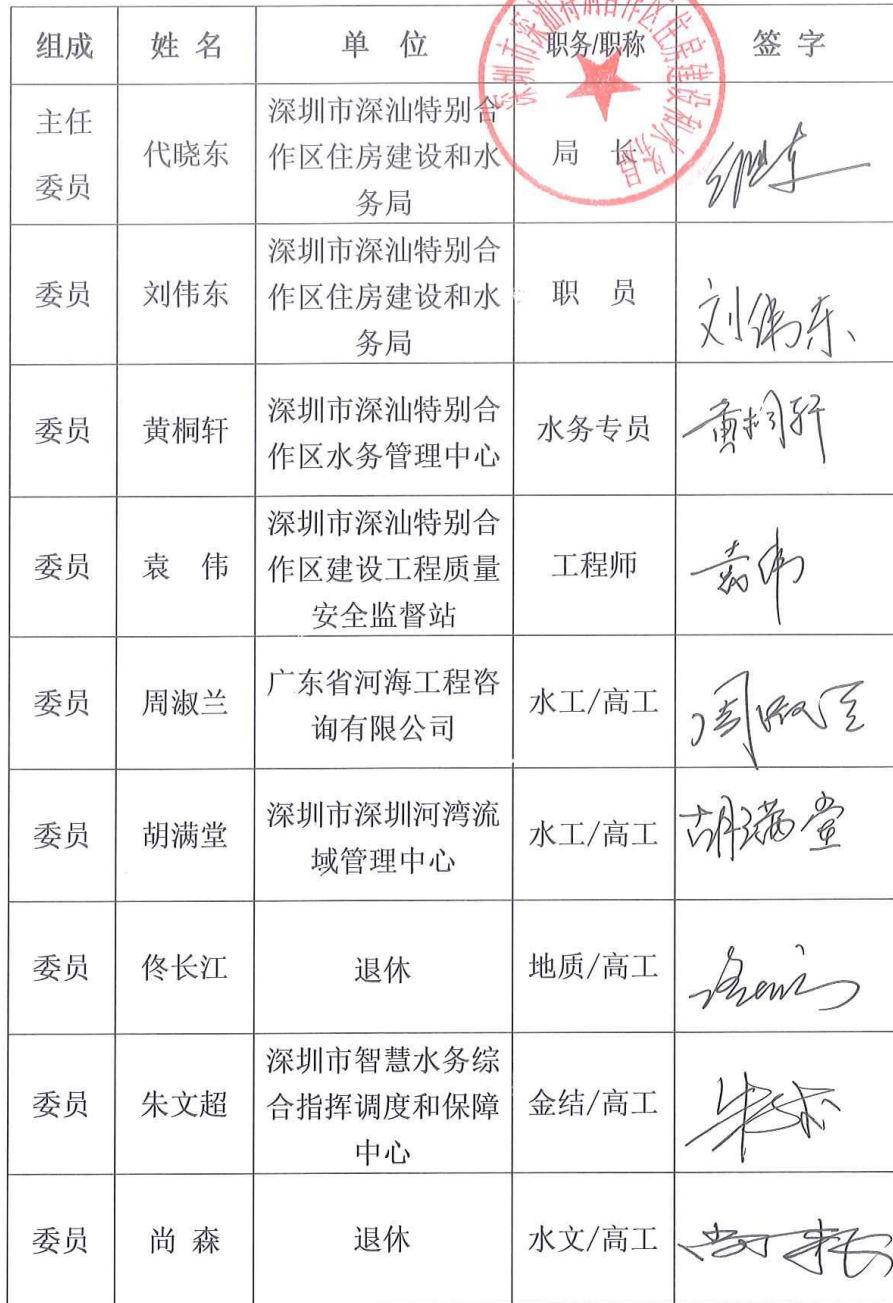 组成 姓名 单位 职务/职称 签字
深圳市深汕特别合作区住房建设和水务局
主任
委员
代晓东
深圳市深汕特别合
作区住房建设和水
务局
局长
委员
刘伟东
深圳市深汕特别合
作区住房建设和水
务局
职员
刘伟东
委员
黄桐轩
深圳市深汕特别合
作区水务管理中心
水务专员
黄桐轩
委员
袁伟
深圳市深汕特别合
作区建设工程质量
安全监督站
工程师
袁伟
委员
周淑兰
广东省河海工程咨
询有限公司
水工/高工
周淑兰
委员
胡满堂
深圳市深圳河湾流
域管理中心
水工/高工
胡满堂
委员
佟长江
退休
地质/高工
委员
朱文超
深圳市智慧水务综
合指挥调度和保障
中心
金结/高工
委员
尚森
退休
水文/高工